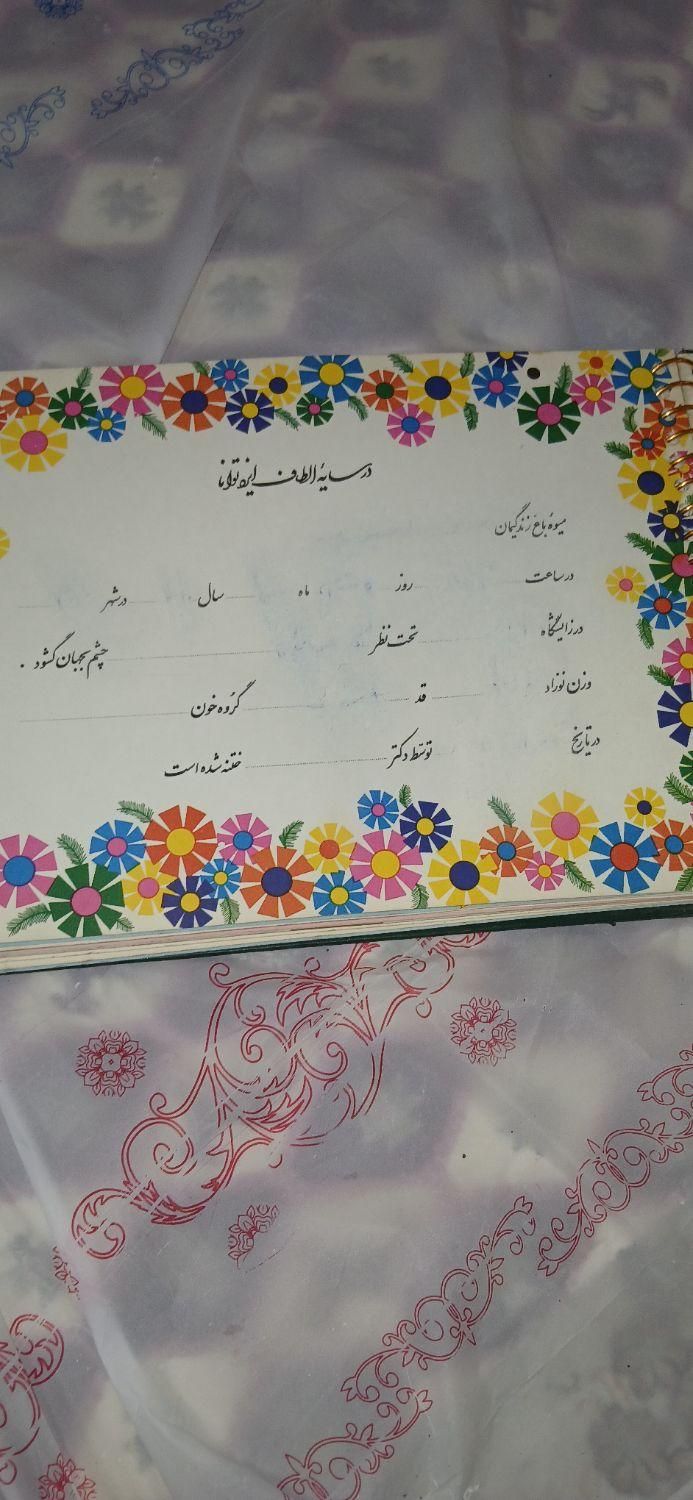 در سایهٔ الطاف ایزد توانا
میوهٔ باغ زندگیمان
در ساعت روز ماه سال در شهر
در زایشگاه تحت نظر چشم بجهان گشود .
وزن نوزاد قد گروه خون
در تاریخ توسط دکتر ختنه شده است